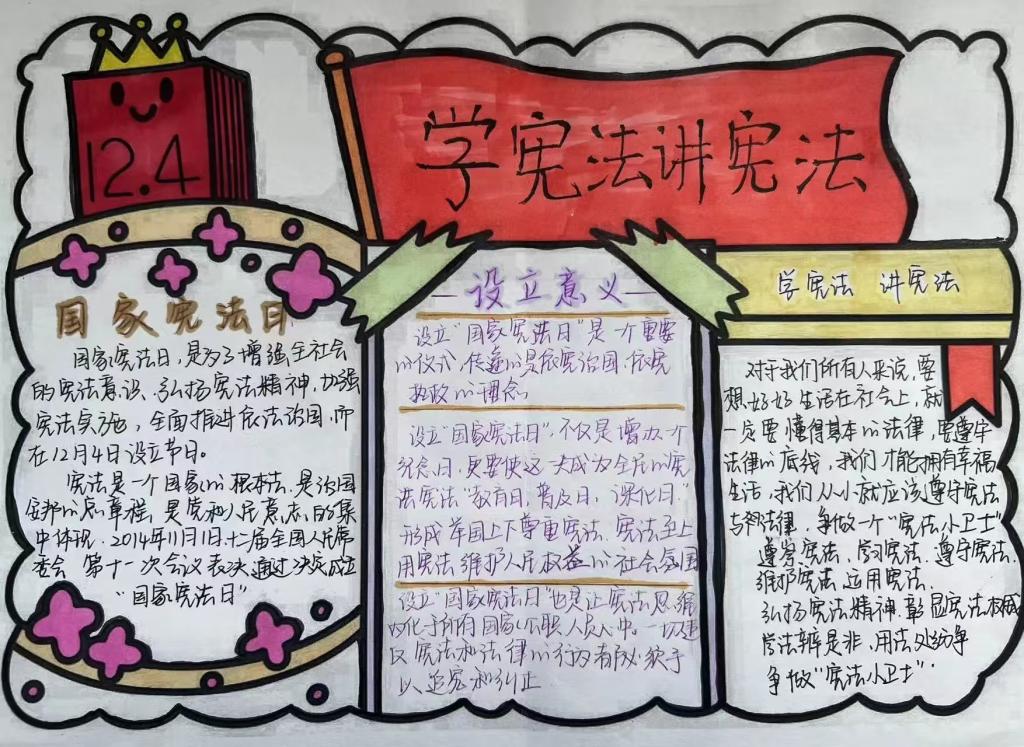 12.4
学宪法讲宪法
国家宪法日
国家宪法日，是为了增强全社会
的宪法意识、弘扬宪法精神，加强
宪法实施，全面推进依法治国，而
在12月4日设立节日。
宪法是一个国家的根本法，是治国
安邦的总章程，是党和人民意志的集
中体现。2014年11月1日，十二届全国人民常
委会 第十一次会议表决通过决定成立
“国家宪法日”
设立意义
设立“国家宪法日”是一个重要
的仪式，传递的是依宪治国、依宪
执政的理念。
设立“国家宪法日”，不仅是增加一个
纪念日，更要使这一天成为全民的宪
法宪法“教育日、普及日、深化日”
形成举国上下尊重宪法、宪法至上
用宪法维护人民权益的社会氛围
设立“国家宪法日”也是让宪法思维
内化于所有国家公职人员心中。一切违
反宪法和法律的行为都必须予
以追究和纠正
学宪法 讲宪法
对于我们所有人来说，要
想好好生活在社会上，就
一定要懂得基本的法律，要遵守
法律的底线，我们才能拥有幸福
生活，我们从小就应该遵守宪法
与 法律，争做一个“宪法小卫士”
遵守宪法、学习宪法、遵守宪法、
维护宪法、运用宪法。
弘扬宪法精神，彰显宪法权威
学法辨是非，用法处纷争
争做“宪法小卫士”.